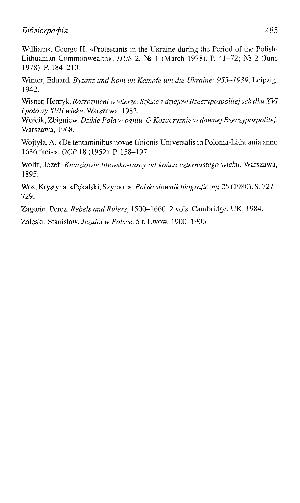 Бібліографія 495
Williams, George H. «Protestants in the Ukraine during the Period of the Polish-
Lithuanian Commonwealth». HUS 2, № 1 (March 1978). P. 41–72; № 2 (June
1978). P. 184–210.
Winter, Eduard. Byzanz und Rom im Kampf um die Ukraine: 955–1939. Leipzig,
1942.
Wisner, Henryk. Rozróżnieni w wierze. Szkice z dziejów Rzeczypospolitej schyłku XVI
i połowy XVII wieku. Warszawa, 1982.
Wójcik, Zbigniew. Dzikie Pola w ogniu. O Kozaczyźnie w dawnej Rzeczypospolitej.
Warszawa, 1968.
Wojtyła, A. «De tentaminibus novae unionis Universalis in Polonia-Lithuania anno
1636 factis». OCP 18 (1952). P. 158–197.
Wolff, Józef. Kniaziowie litewsko-ruscy od końca czternastego wieku. Warszawa,
1895.
Krystyna. «Pękalski, Szymon». Polski słownik biograficzny 25 (1980). S.
729.
Zagorin, Perez. Rebels and Rulers, 1500–1660. 2 vols. Cambridge, UK, 1984.
Załęski, Stanisław. Jezuici w Polsce. 5 t. Lwów, 1900–1906.